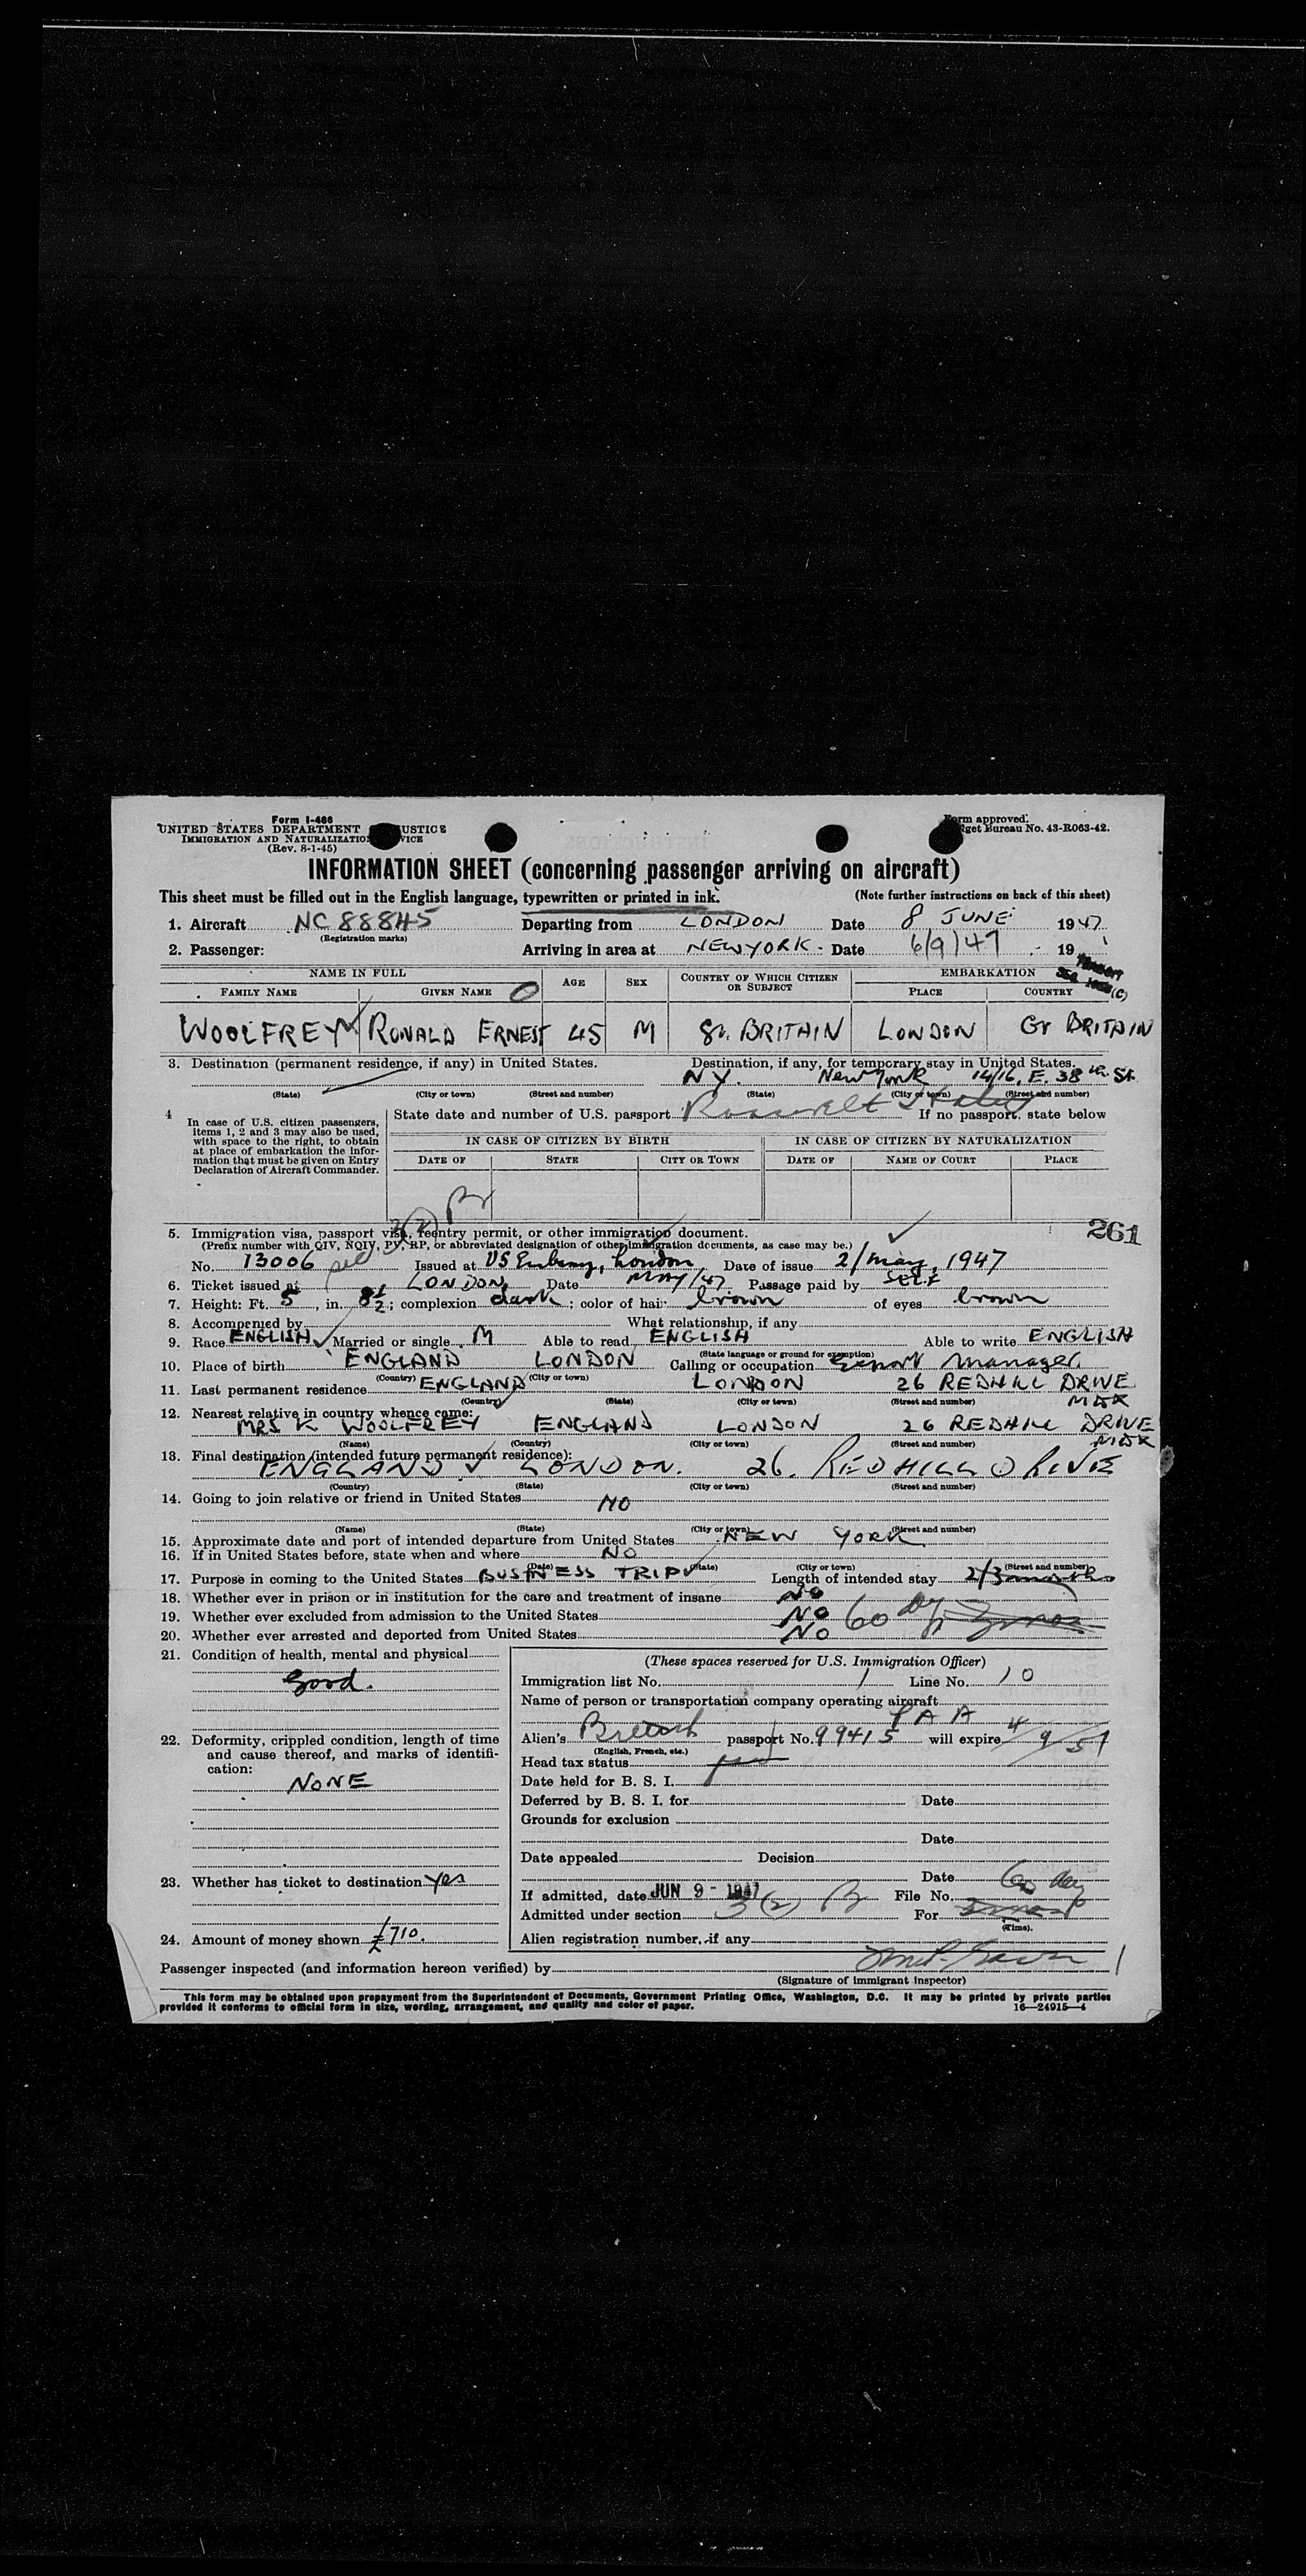 Form I-466
UNITED STATES DEPARTMENT USTICE
IMMIGRATION AND NATURALIZATIO VICE
(Rev. 8-1-45)
orm approved.
get Bureau No. 43-R063-42.
INFORMATION SHEET (concerning passenger arriving on aircraft)
This sheet must be filled out in the English language, typewritten or printed in ink.
(Note further instructions on back of this sheet)
1. Aircraft NC 88845 Departing from LONDON Date 8 JUNE 1947
(Registration marks)
2. Passenger: Arriving in area at NEW YORK Date 6/9/47 19
NAME IN FULL AGE SEX COUNTRY OF WHICH CITIZEN OR SUBJECT EMBARKATION
FAMILY NAME GIVEN NAME PLACE COUNTRY
WOOLFREY RONALD ERNEST 45 M Gt. BRITAIN LONDON Gt BRITAIN
3. Destination (permanent residence, if any) in United States. Destination, if any, for temporary stay in United States.
N Y. New York 14/16, E. 38th St
(State) (City or town) (Street and number) (State) (City or town) (Street and number)
4 In case of U.S. citizen passengers, items 1, 2 and 3 may also be used, with space to the right, to obtain at place of embarkation the information that must be given on Entry Declaration of Aircraft Commander.
State date and number of U.S. passport Roosevelt Hotel If no passport, state below
IN CASE OF CITIZEN BY BIRTH IN CASE OF CITIZEN BY NATURALIZATION
DATE OF STATE CITY OR TOWN DATE OF NAME OF COURT PLACE
5. Immigration visa, passport visa, reentry permit, or other immigration document. 261
(Prefix number with QIV, NQIV, PV, RP, or abbreviated designation of other immigration documents, as case may be.)
No. 13006 Issued at US Embassy, London Date of issue 2/May, 1947
6. Ticket issued at LONDON Date MAY/47 Passage paid by SELF
7. Height: Ft. 5, in. 8½; complexion dark; color of hair brown of eyes brown
8. Accompanied by What relationship, if any
9. Race ENGLISH Married or single M Able to read ENGLISH Able to write ENGLISH
(State language or ground for exemption)
10. Place of birth ENGLAND LONDON Calling or occupation Export Manager
(Country) (City or town)
11. Last permanent residence ENGLAND LONDON 26 REDHILL DRIVE
MDX
(Country) (State) (City or town) (Street and number)
12. Nearest relative in country whence came:
MRS K WOOLFREY ENGLAND LONDON 26 REDHILL DRIVE
MDX
(Name) (Country) (City or town) (Street and number)
13. Final destination (intended future permanent residence):
ENGLAND LONDON. 26. REDHILL DRIVE
(Country) (State) (City or town) (Street and number)
14. Going to join relative or friend in United States NO
(Name) (State) (City or town) (Street and number)
15. Approximate date and port of intended departure from United States NEW YORK
16. If in United States before, state when and where NO
(Date) (State) (City or town) (Street and number)
17. Purpose in coming to the United States BUSINESS TRIP Length of intended stay 2/3 months
18. Whether ever in prison or in institution for the care and treatment of insane NO
19. Whether ever excluded from admission to the United States NO 60 dys
20. Whether ever arrested and deported from United States NO
21. Condition of health, mental and physical
Good.
22. Deformity, crippled condition, length of time and cause thereof, and marks of identification:
NONE
23. Whether has ticket to destination Yes
24. Amount of money shown £710.
(These spaces reserved for U.S. Immigration Officer)
Immigration list No. 1 Line No. 10
Name of person or transportation company operating aircraft
P A A
Alien's British passport No. 99415 will expire 4/9/51
(English, French, etc.)
Head tax status
Date held for B. S. I.
Deferred by B. S. I. for Date
Grounds for exclusion
Date
Date appealed Decision
Date
If admitted, date JUN 9 - 1947 File No.
Admitted under section 3(2) B For 60 day
(Time).
Alien registration number, if any
Passenger inspected (and information hereon verified) by
(Signature of immigrant inspector)
This form may be obtained upon prepayment from the Superintendent of Documents, Government Printing Office, Washington, D.C. It may be printed by private parties
provided it conforms to official form in size, wording, arrangement, and quality and color of paper. 16—24915-4